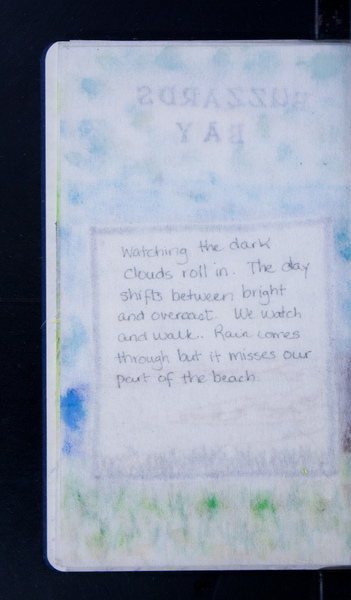 BUZZARDS
BAY
Watching the dark
clouds roll in. The day
shifts between bright
and overcast. We watch
and walk.. Rain comes
through but it misses our
part of the beach.